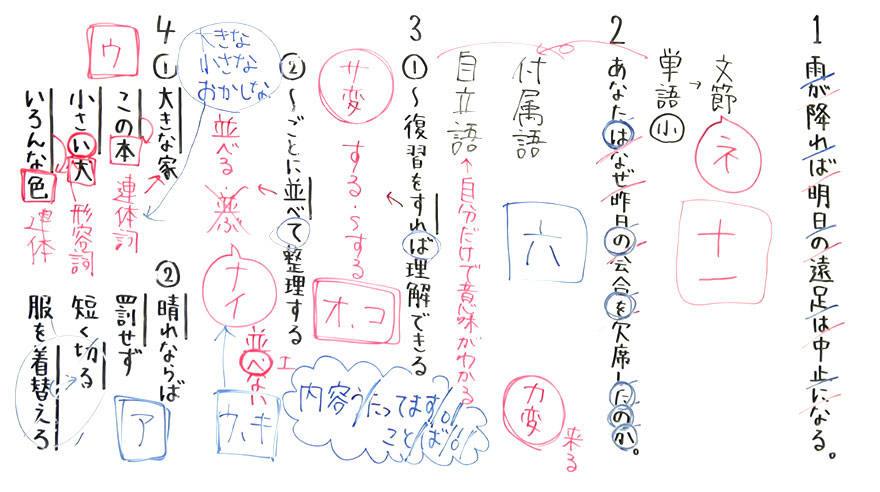 1 雨が降れば明日の遠足は中止になる。
文節
ネ
十一
単語 小
2 あなたはなぜ昨日の会合を欠席したのか。
付属語
六
自立語
↑自分だけで意味がわかる
カ変
来る
3
①〜復習をすれば理解できる
サ変
する・〜する
オ、コ
②〜ごとに並べて整理する
並べる
ナイ
並べない
エ
ウ、キ
内容うたってます!!
ことば!!
大きな
小さな
おかしな
4
ウ
①大きな家
この本
連体詞
小さい犬
形容詞
いろんな色
連体
②晴れならば
罰せず
短く切る
服を着替えろ
ア